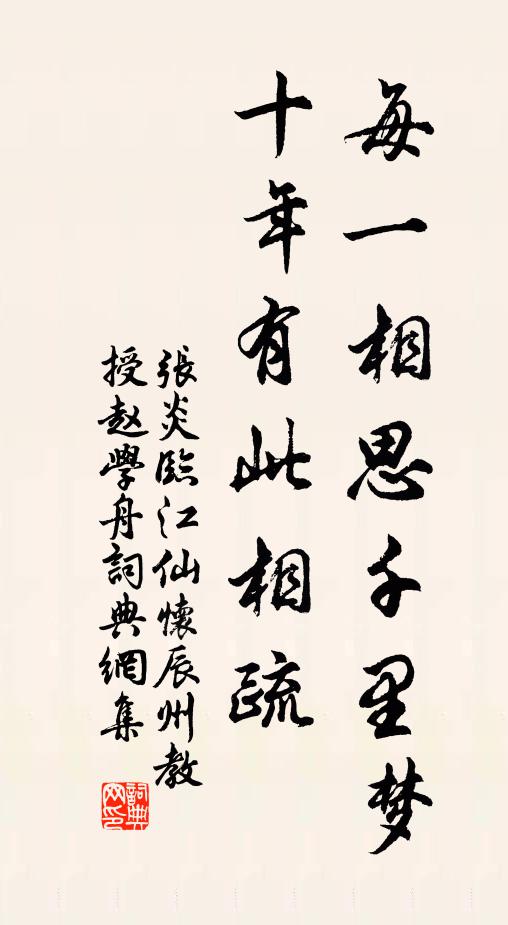 每一相思千里梦
十年有此相疏
張炎臨江仙懷辰州教
授赵學舟詞典網集
詞典网印